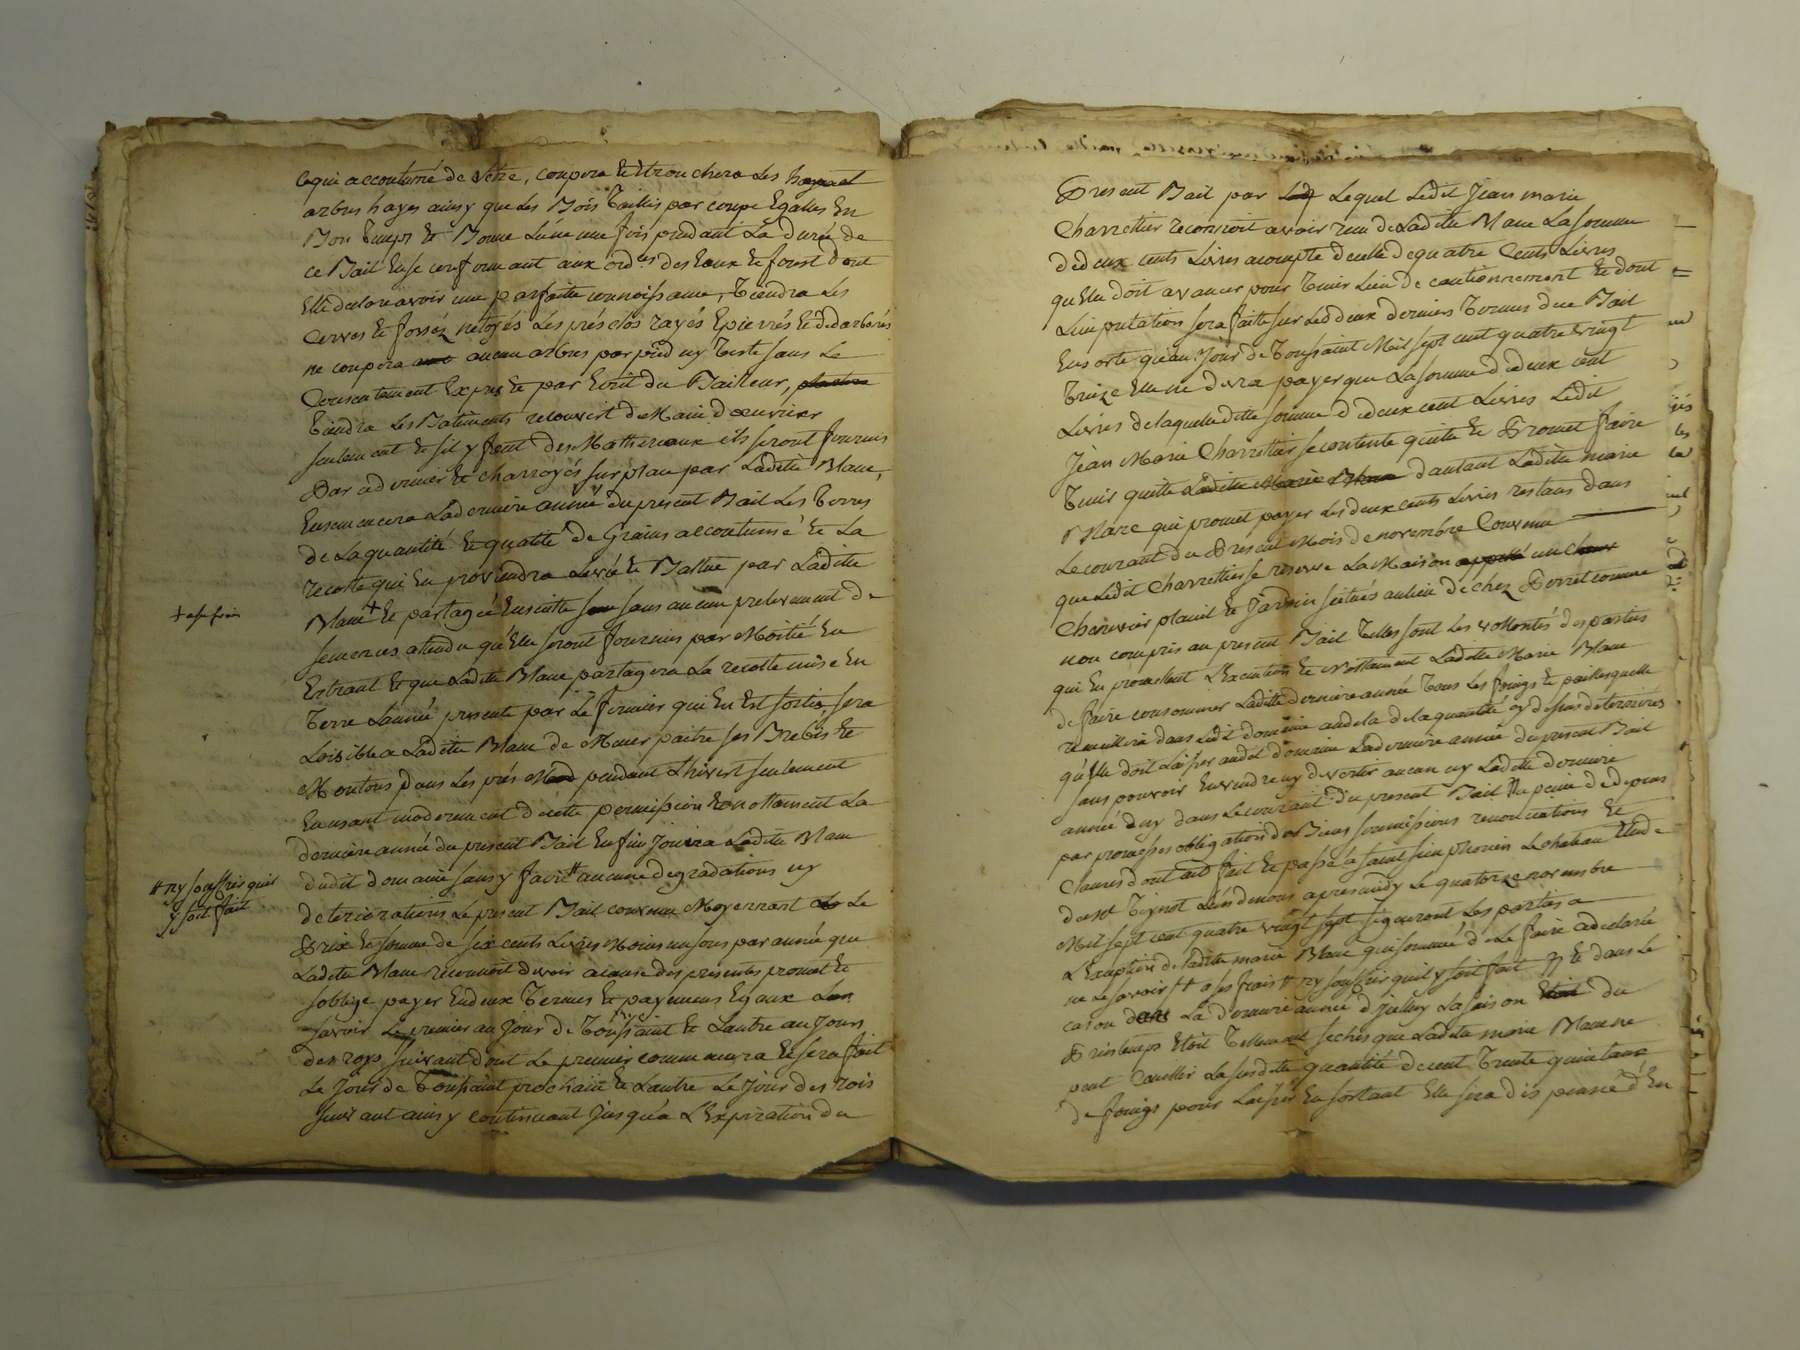 ce qui accoutumé de letre, coupera et etronchera les
arbres hayes ainsy que les Bois Taillis par coupe Egalles En
Bon Temps et Bonne Lune une fois pendant La durée de
ce Bail En se conformant aux ord.es des Eaux et forest dont
Elle declare avoir une parfaitte connoissance, Tiendra Les
Cerves et fossez netoyés Les prés clos rayés Epierrés et
ne coupera aucun arbres par pied ny Teste sans Le
Consentement Exprès et par Ecrit du Bailleur,
Tiendra Les Batiments recouvert de Main d'ouvrier
seulement et sil y faut des Mathereaux ils seront fournis
Par ce dernier et charroyés sur place par Ladette Blanc,
Ensemencera La derniere année du present Bail Les Terres
de La quantité et qualité de Grains accoutumé et La
recolte qui En proviendra Levée et Battue par Laditte
+ a ses frais
Blanc + et partagée Ensuitte sans aucun prelevement de
semences attendu qu'Elle seront fournies par Moitié En
Entrant et que Ladette Blanc partagera La recolte mise En
Terre Lannée presente par Le fermier qui En Est sortie, sera
Loisible a Ladette Blanc de Mener paitre ses Brebis et
Moutons dans Les prés pendant Lhivert seulement
En usant moderement de cette permission et nottament La
derniere année du present Bail En fin jouira Ladette Blanc
# ny souffrir quil
y soit fait
dudit domaine sans y faire # aucune degradations ny
deteriorations Le present Bail convenu Moyennant Le
Prix et somme de six cents Livres Moins un sous par année que
Ladette Blanc reconnoit devoir a cause des presentes promet et
soblige payer En deux Termes et payemens Egaux
savoir Le premier au jour de Toussaint et Lautre au jour
des roys suivant dont Le premier commencera et sera fait
Le jour de Toussaint prochain et Lautre Le jour des rois
suivant ainsy continuant jusqu'a L'Expiration du
Present Bail par Lequel Ledit Jean marie
Charrettier reconnoit avoir reçu de Laditte Blanc La somme
de deux cents Livres acompte de celle de quatre Cents Livres
qu'Elle doit avancer pour Tenir Lieu de cautionnement et dont
Limputation sera faitte sur Les deux derniers Termes du Bail
En sorte qu'au Jour de Toussaint Mil sept cent quatre vingt
Treize Elle ne devra payer que La somme de deux cent
Livres de laquelle ditte somme de deux cent Livres Ledit
Jean Marie Charrettier se contente quitte et Promet faire
Tenir quitte d'autant Laditte marie
Blanc qui promet payer Les deux cents Livres restans dans
Le courant du Present Mois de novembre Convenu
que Ledit Charrettier se reserve La Maison un
Chenevier planil et Jardin scitués au lieu de chez Perret comme
non compris au present Bail Telles sont Les vollontés des parties
qui En promettent L'Execution et Nottament Ladette Marie Blanc
de faire consommer Laditte derniere année Tous Les foings et pailles quelle
recueillira dans Ledit domaine audela de la quantité cy dessus determinés
qu'Elle doit Laisser audit domaine La derniere année du present Bail
sans pouvoir En vendre ny divertir aucun ny Ladette derniere
année d'uy dans Le courant du present Bail a peine de depens
par promesses obligation de Biens soumissions renonciations et
Clauses dont acte fait et passé a Saint simphorien Le chateau Etude
de Me Teynot L'un de nous apres midy Le quatorze novembre
Mil sept cent quatre vingt sept signeront Les parties a
L'Exception de ladite marie Blanc qui sommée de Le faire a declaré
ne Le savoir + a ses frais # ny souffrir quil y soit fait et dans Le
cas ou La derniere année d'jcelluy La saison du
Printemps Etoit Tellement seches que Ladette marie Blanc ne
peut Cueillir La susditte quantité de cent Trente quintaux
de foings pour Laisser En sortant Elle sera dispensée d'En